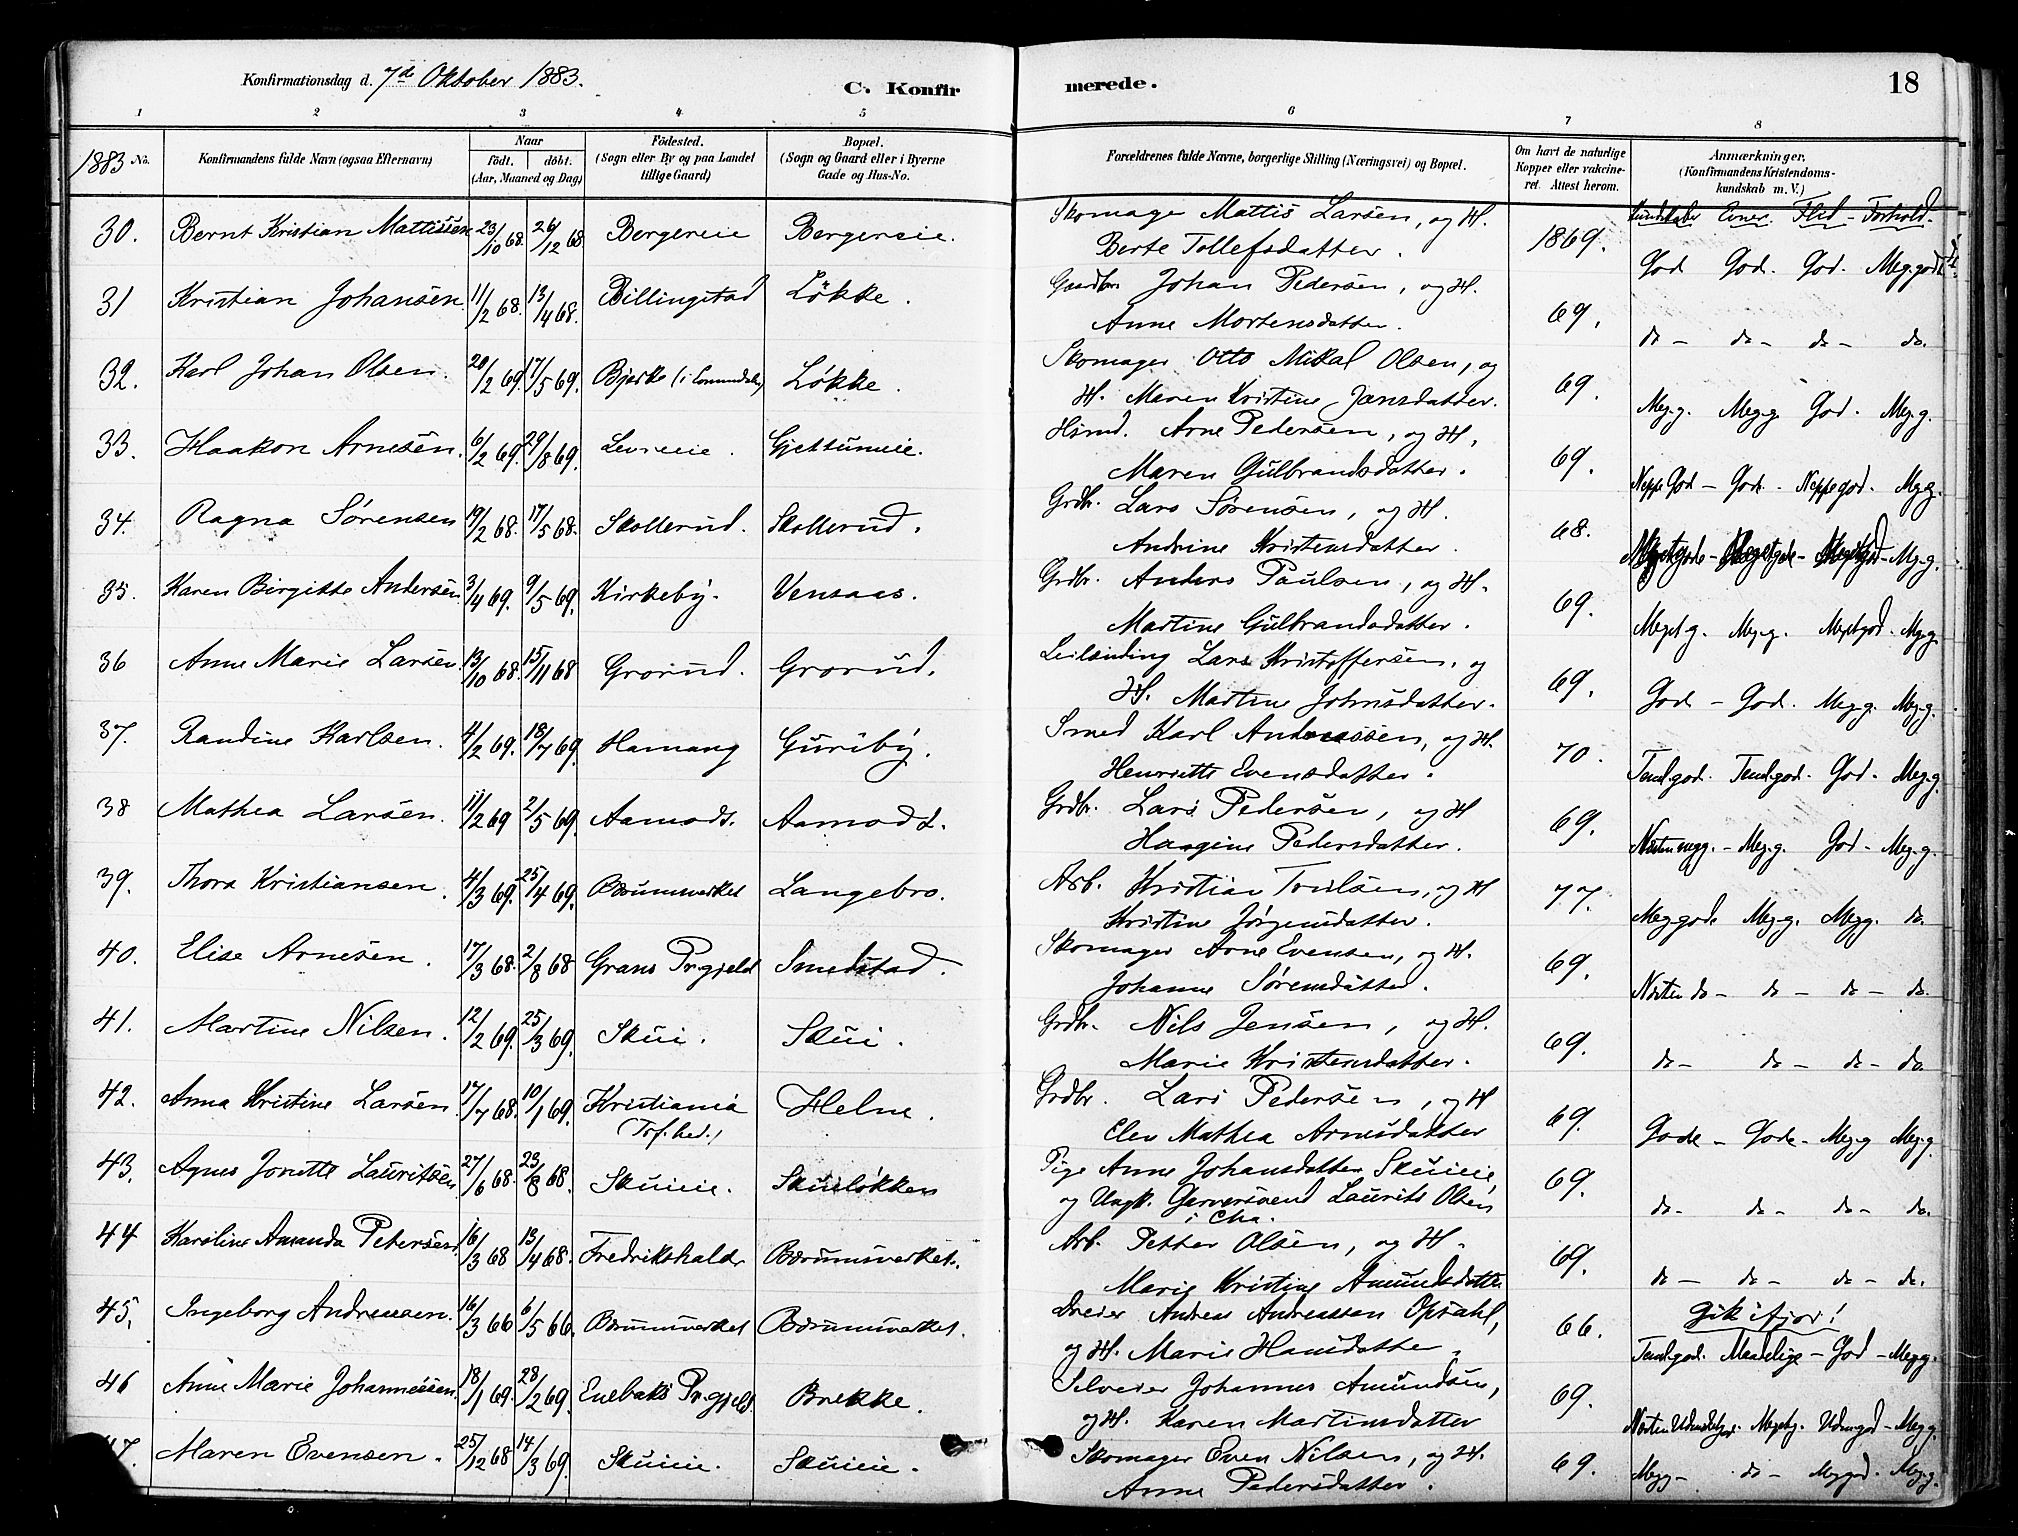 Konfirmationsdag d. 7de Oktober 1883.
C. Konfirmerede.
18
1 2 3 4 5 6 7 8
1883 No.
Konfirmandens fulde Navn (ogsaa Efternavn)
Naar
födt. döbt.
(Aar, Maaned og Dag)
Födested.
(Sogn eller By og paa Landet
tillige Gaard)
Bopæl.
(Sogn og Gaard eller i Byerne
Gade og Hus-No.
Forældrenes fulde Navne, borgerlige Stilling (Næringsvei) og Bopæl.
Om havt de naturlige
Kopper eller vakcine-
ret. Attest herom.
Anmærkninger,
(Konfirmandens Kristendoms-
kundskab m. V.)
Kundskaber Evner. Flid - Forhold.
30. Bernt Kristian Mattissen 23/10 68. 26/12 68 Bergereie Bergereie. Skomager Mattis Larsen, og H. 1869.
Berte Tollefsdatter. God God. God. Meg.godt
31 Kristian Johansen 11/2 68. 13/4 68. Billingstad Løkke. Gaardbr. Johan Pedersen, og H. 69.
Anne Mortensdatter. do - do - do - do.
32. Karl Johan Olsen. 20/2 69. 17/5 69. Bjerke (i Lommedalen) Løkke. Skomager Otto Mikal Olsen, og 69.
H. Maren Kristine Jænsdatter. Meg.g. Meg.g. God. Meg.g.
33. Haakon Arnesen. 6/2 69. 29/8 69. Levreeie. Gjettumeie. Hsmd. Arne Pedersen, og H. 69.
Maren Gulbrandsdatter. Neppe God - God. - Neppe god. Meg.g.
34. Ragna Sørensen 19/2 68. 17/5 68. Skollerud. Skollerud. Grdbr. Lars Sørensen, og H. 68.
Andrine Kristensdatter. Meg.g.
35. Karen Birgitte Andersen. 3/4 69. 9/5 69. Kirkeby. Vensaas. Grdbr. Anders Paulsen, og H. 69.
Martine Gulbrandsdatter. Meget g. Meg.g. Meget god. Meg.g.
36 Anne Marie Larsen. 13/10 68. 15/11 68 Grorud. Grorud. Leilænding Lars Kristoffersen, og 69.
H. Martine Johnsdatter. God - God. Meg.g. Meg.g.
37. Randine Karlsen. 4/2 69. 18/7 69. Hamang Guriby. Smed Karl Andreassen, og H. 70.
Henriette Evensdatter. Teml.god. Teml.god. God. Meg.g.
38 Mathea Larsen. 11/2 69 2/5 69. Aamodt. Aamodt. Grdbr. Lars Pedersen, og H 69.
Haagine Pedersdatter. Næsten meg.g. - Meg.g. God - Meg.g.
39. Thora Kristiansen. 4/3 69. 25/4 69. Bærumsverket Langebro. Arb. Kristian Troilsen, og H 77.
Kristine Jørgensdatter. Meg.gode Meg.g. Meg.g. do.
40. Elise Arnesen. 17/3 68. 2/8 68 Grans Prgjeld Smedstad. Skomager Arne Evensen, og H. 69.
Johanne Sørensdatter. Næsten do - do - do - do.
41. Martine Nilsen. 12/2 69. 25/3 69. Skui. Skui. Grdbr. Nils Jensen, og H. 69.
Marie Kristensdatter. do - do - do - do
42. Anna Kristine Larsen. 17/7 68. 10/1 69. Kristiania Helne. Grdbr. Lars Pedersen, og H 69.
(Trf.hed.) Elen Mathea Arnesdatter Gode - Gode - Meg.g Meg.g.
43. Agnes Jonette Lauritsen 27/6 68. 23/8 68. Skuieie. Skuiløkken Pige Anne Johansdatter Skuieie, 69.
og Ungk. Garversvend Laurits Olsen do - do - do - do.
i Cha.
44 Karoline Amanda Petersen. 16/3 68 13/4 68. Fredrikshald Bærumsverket. Arb. Petter Olsen, og H. 69.
Marie Kristine Amundsdatter do - do - do - do.
45. Ingeborg Andreassen. 16/3 66 6/5 66. Bærumsverket Bærumsverket. Dreier Andreas Andreassen Opsahl, 66. Gik ifjor!
og H. Marie Hansdatter. Teml.god. Maadelige - God - Meg.g.
46 Anne Marie Johannessen. 18/1 69. 28/2 69. Enebaks Prgjeld Brekke. Selveier Johannes Amundsen, 69.
og H. Karen Martinsdatter Næsten Udmærket god. Meget g. Udm.god - Meg.g.
47. Maren Evensen. 25/12 68 14/3 69. Skuieie. Skuieie. Skomager Even Nilsen, og H. 69.
Anne Pedersdatter. Meg.g - do - Meg.god. Meg.g.